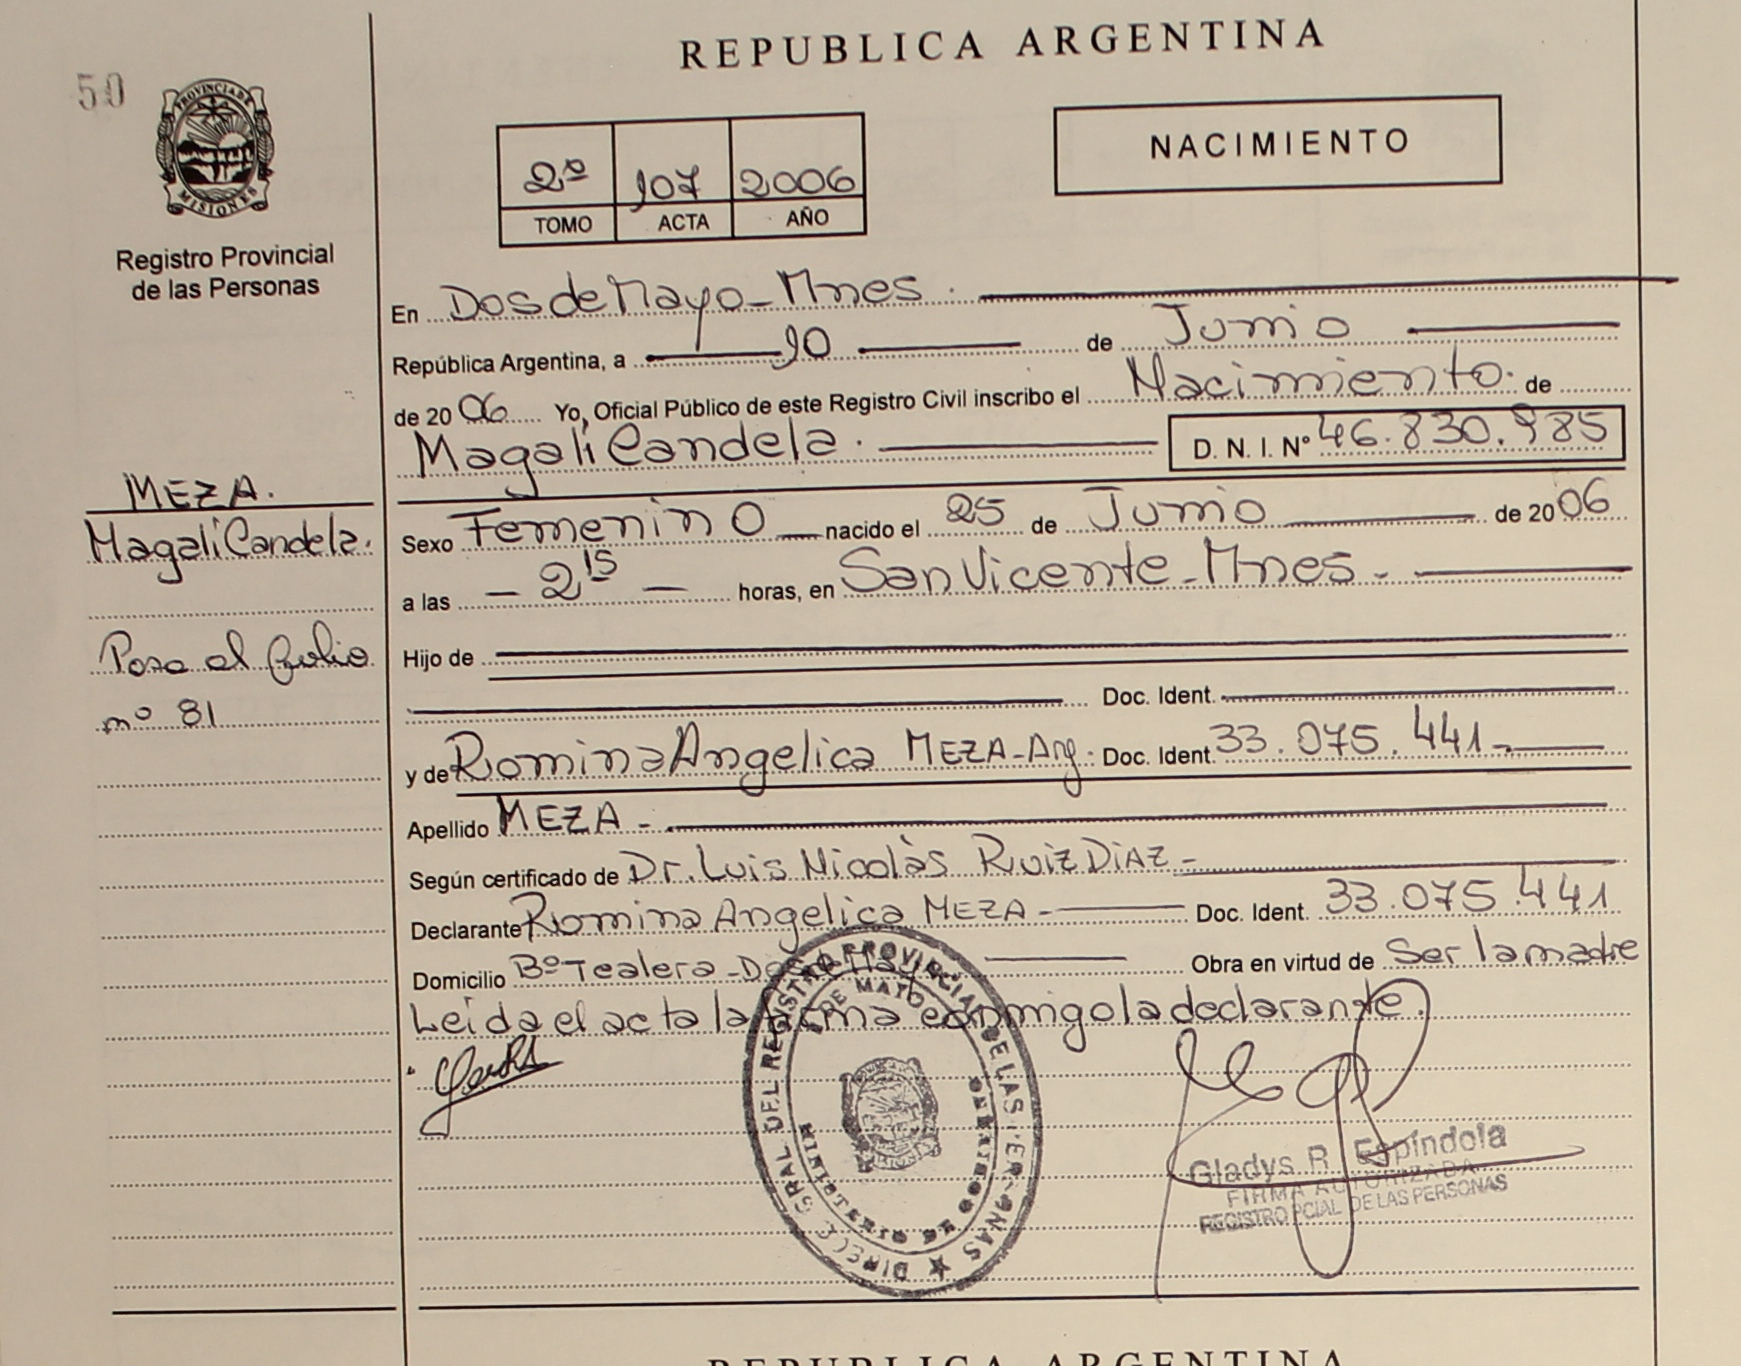 REPUBLICA ARGENTINA
50
PROVINCIA DE
MISIONES
Registro Provincial
de las Personas
2º 107 2006
TOMO ACTA AÑO
NACIMIENTO
En Dos de Mayo - Mnes.
República Argentina, a 10 de Junio
de 2006 Yo, Oficial Público de este Registro Civil inscribo el Nacimiento de
Magali Candela. D. N. I. Nº 46.830.985
MEZA.
Magali Candela.
Pasa al folio
nº 81
Sexo Femenino nacido el 25 de Junio de 2006
a las - 2 15 - horas, en San Vicente - Mnes.
Hijo de
Doc. Ident.
y de Romina Angelica MEZA - Arg. Doc. Ident. 33.075.441 -
Apellido MEZA -
Según certificado de Dr. Luis Nicolàs RUIZ DIAZ -
Declarante Romina Angelica MEZA - Doc. Ident. 33.075.441
Domicilio Bº Tealera - Dos de Mayo Obra en virtud de Ser la madre
Leida el acta la firma conmigo la declarante.
DIREC. GRAL DEL REGISTRO PROVINCIAL DE LAS PERSONAS
DE MAYO
MINISTERIO DE GOBIERNO
Gladys R. Espíndola
FIRMA AUTORIZADA
REGISTRO PCIAL DE LAS PERSONAS
REPUBLICA ARGENTINA